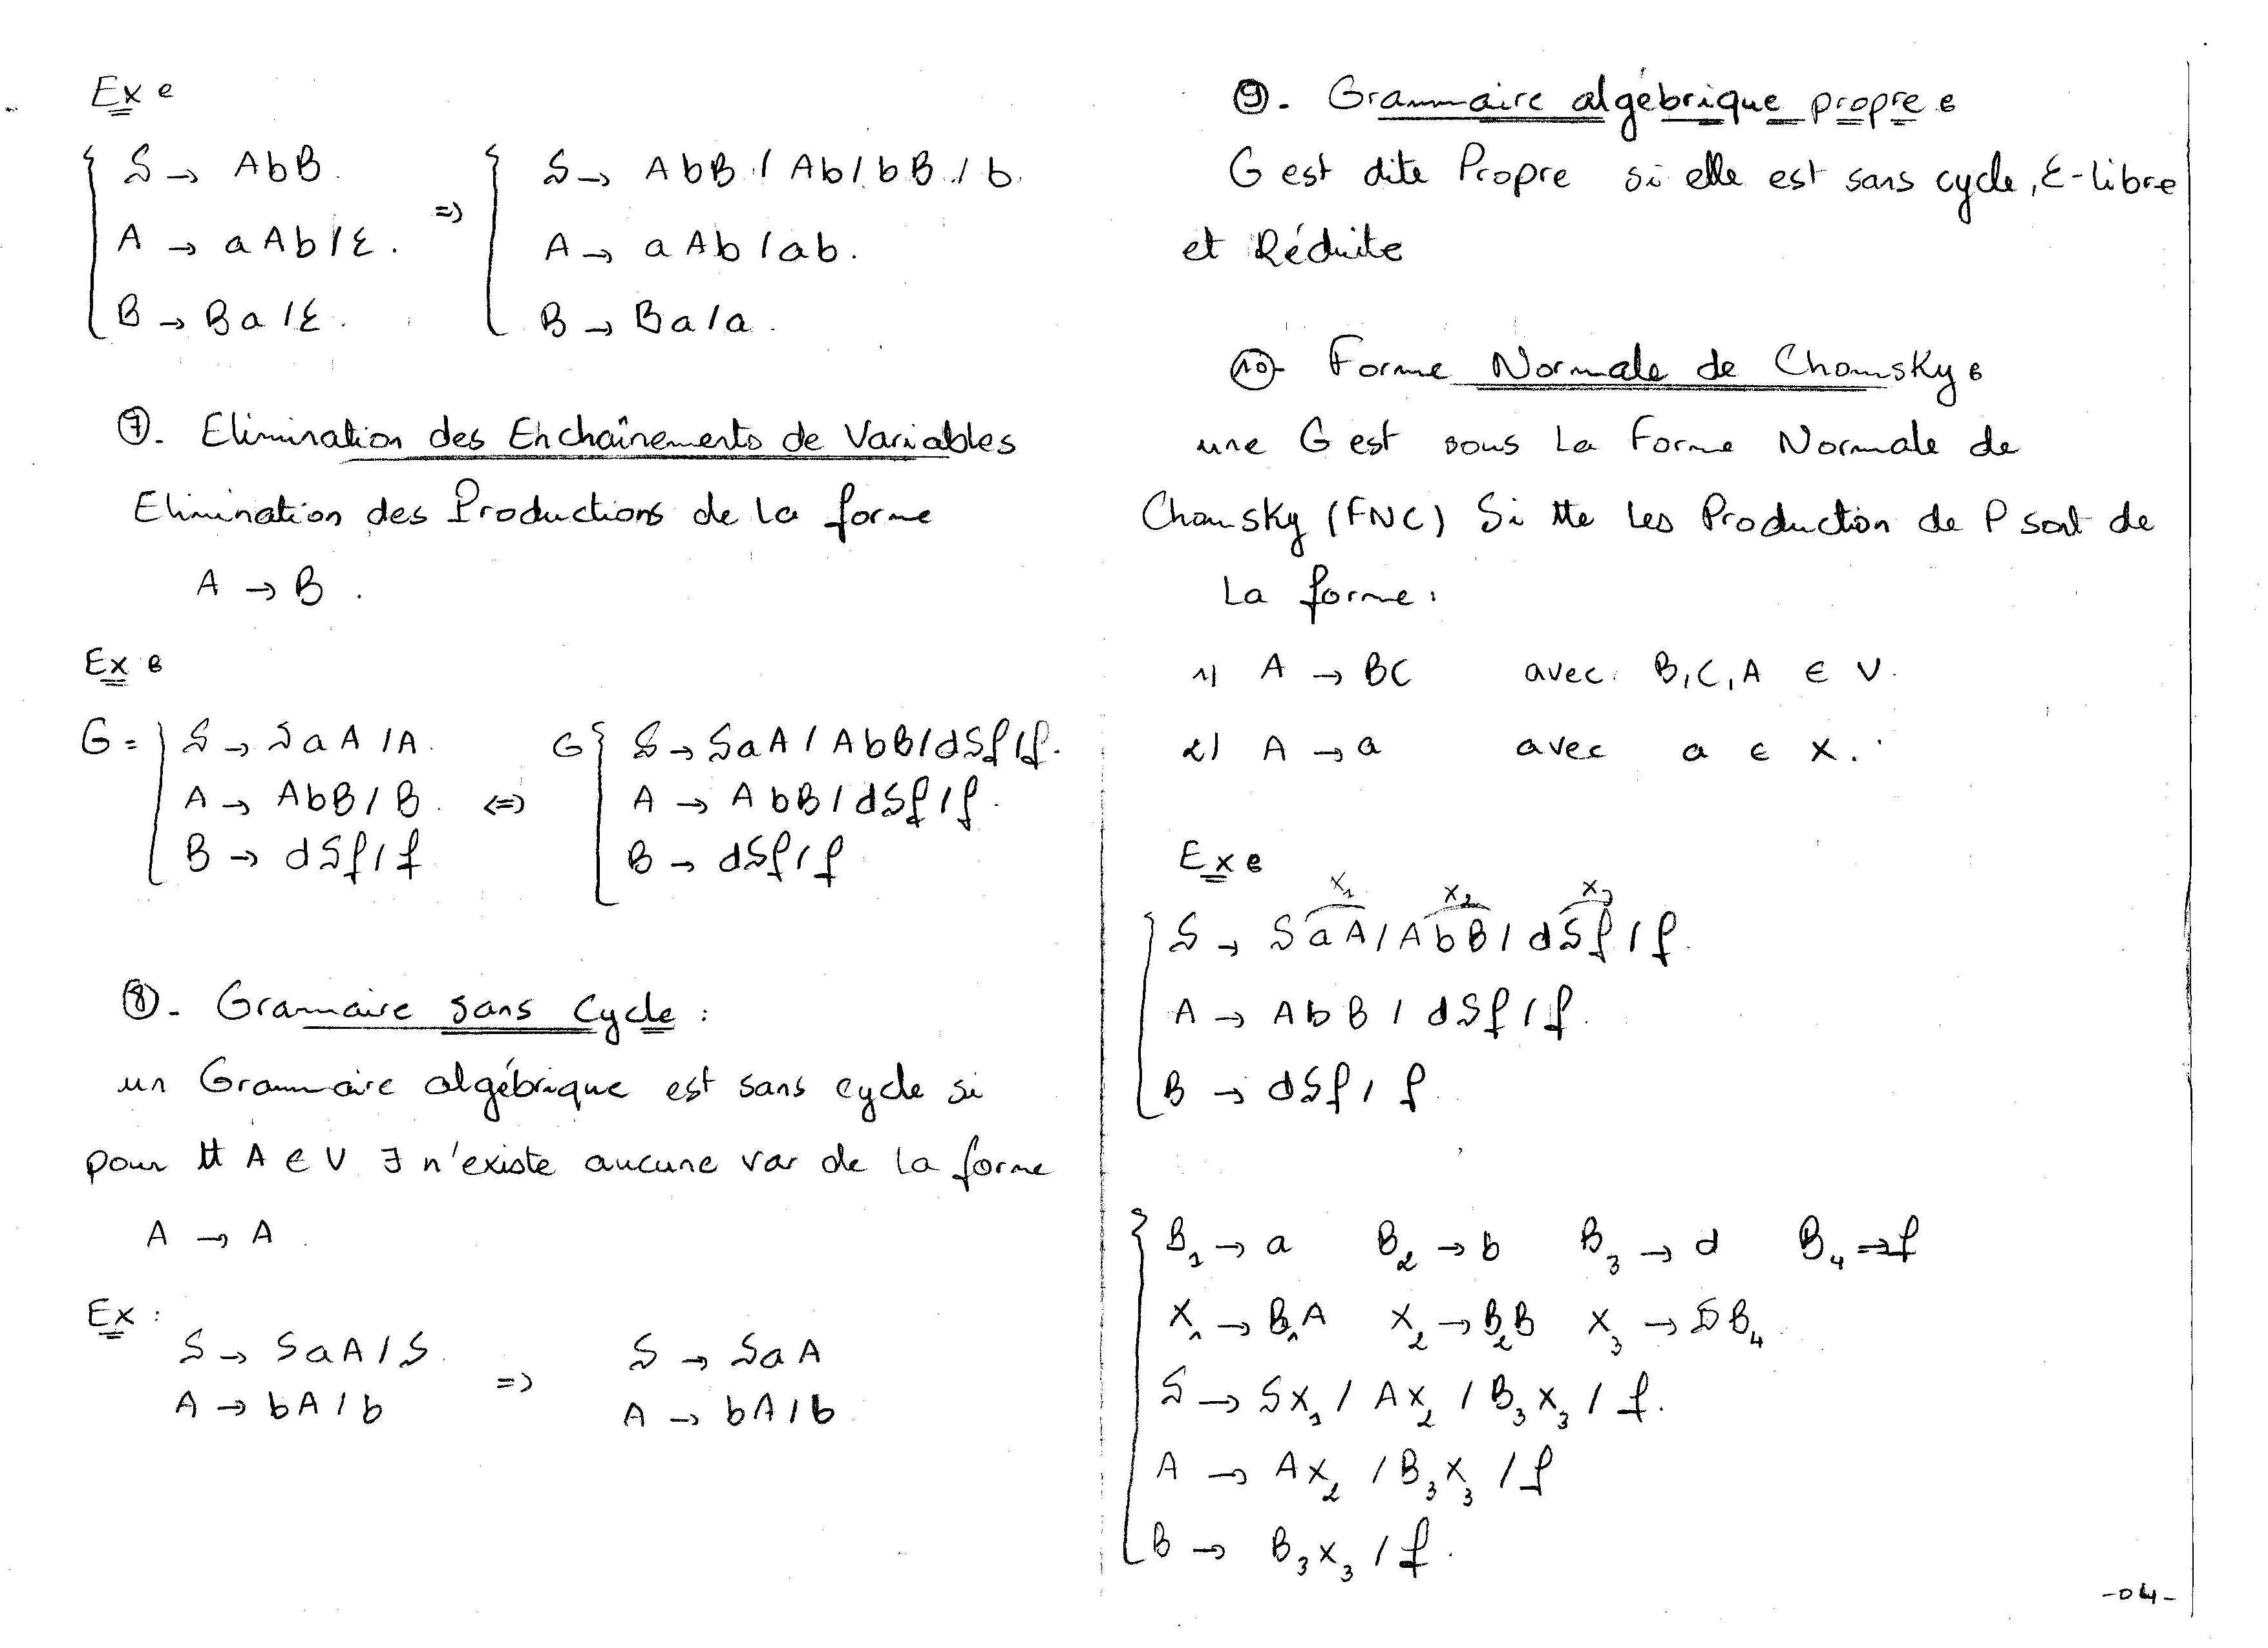 Ex :
S → AbB.
A → aAb/ε.
B → Ba/ε.
=>
S → AbB / Ab / bB / b.
A → aAb / ab.
B → Ba/a.
⑦. Elimination des Enchaînements de Variables
Elimination des Productions de la forme
A → B.
Ex :
G =
S → SaA / A.
A → AbB / B.
B → dSf / f
<=>
G
S → SaA / AbB / dSf / f.
A → AbB / dSf / f.
B → dSf / f
⑧. Grammaire sans Cycle :
un Grammaire algébrique est sans cycle si
pour tt A ∈ V ∃ n'existe aucune var de la forme
A → A.
Ex :
S → SaA / S.
A → bA / b
=>
S → SaA
A → bA / b
⑨. Grammaire algébrique propre :
G est dite Propre si elle est sans cycle, ε-libre
et Réduite
⑩- Forme Normale de Chomsky :
une G est sous la Forme Normale de
Chomsky (FNC) Si tte les Production de P sont de
la forme :
1) A → BC avec B, C, A ∈ V.
2) A → a avec a ∈ X.
Ex :
X₁ X₂ X₃
S → SaA / AbB / dSf / f.
A → AbB / dSf / f.
B → dSf / f.
B₁ → a B₂ → b B₃ → d B₄ → f
X₁ → B₁A X₂ → B₂B X₃ → SB₄.
S → SX₁ / AX₂ / B₃X₃ / f.
A → AX₂ / B₃X₃ / f
B → B₃X₃ / f.
-04-